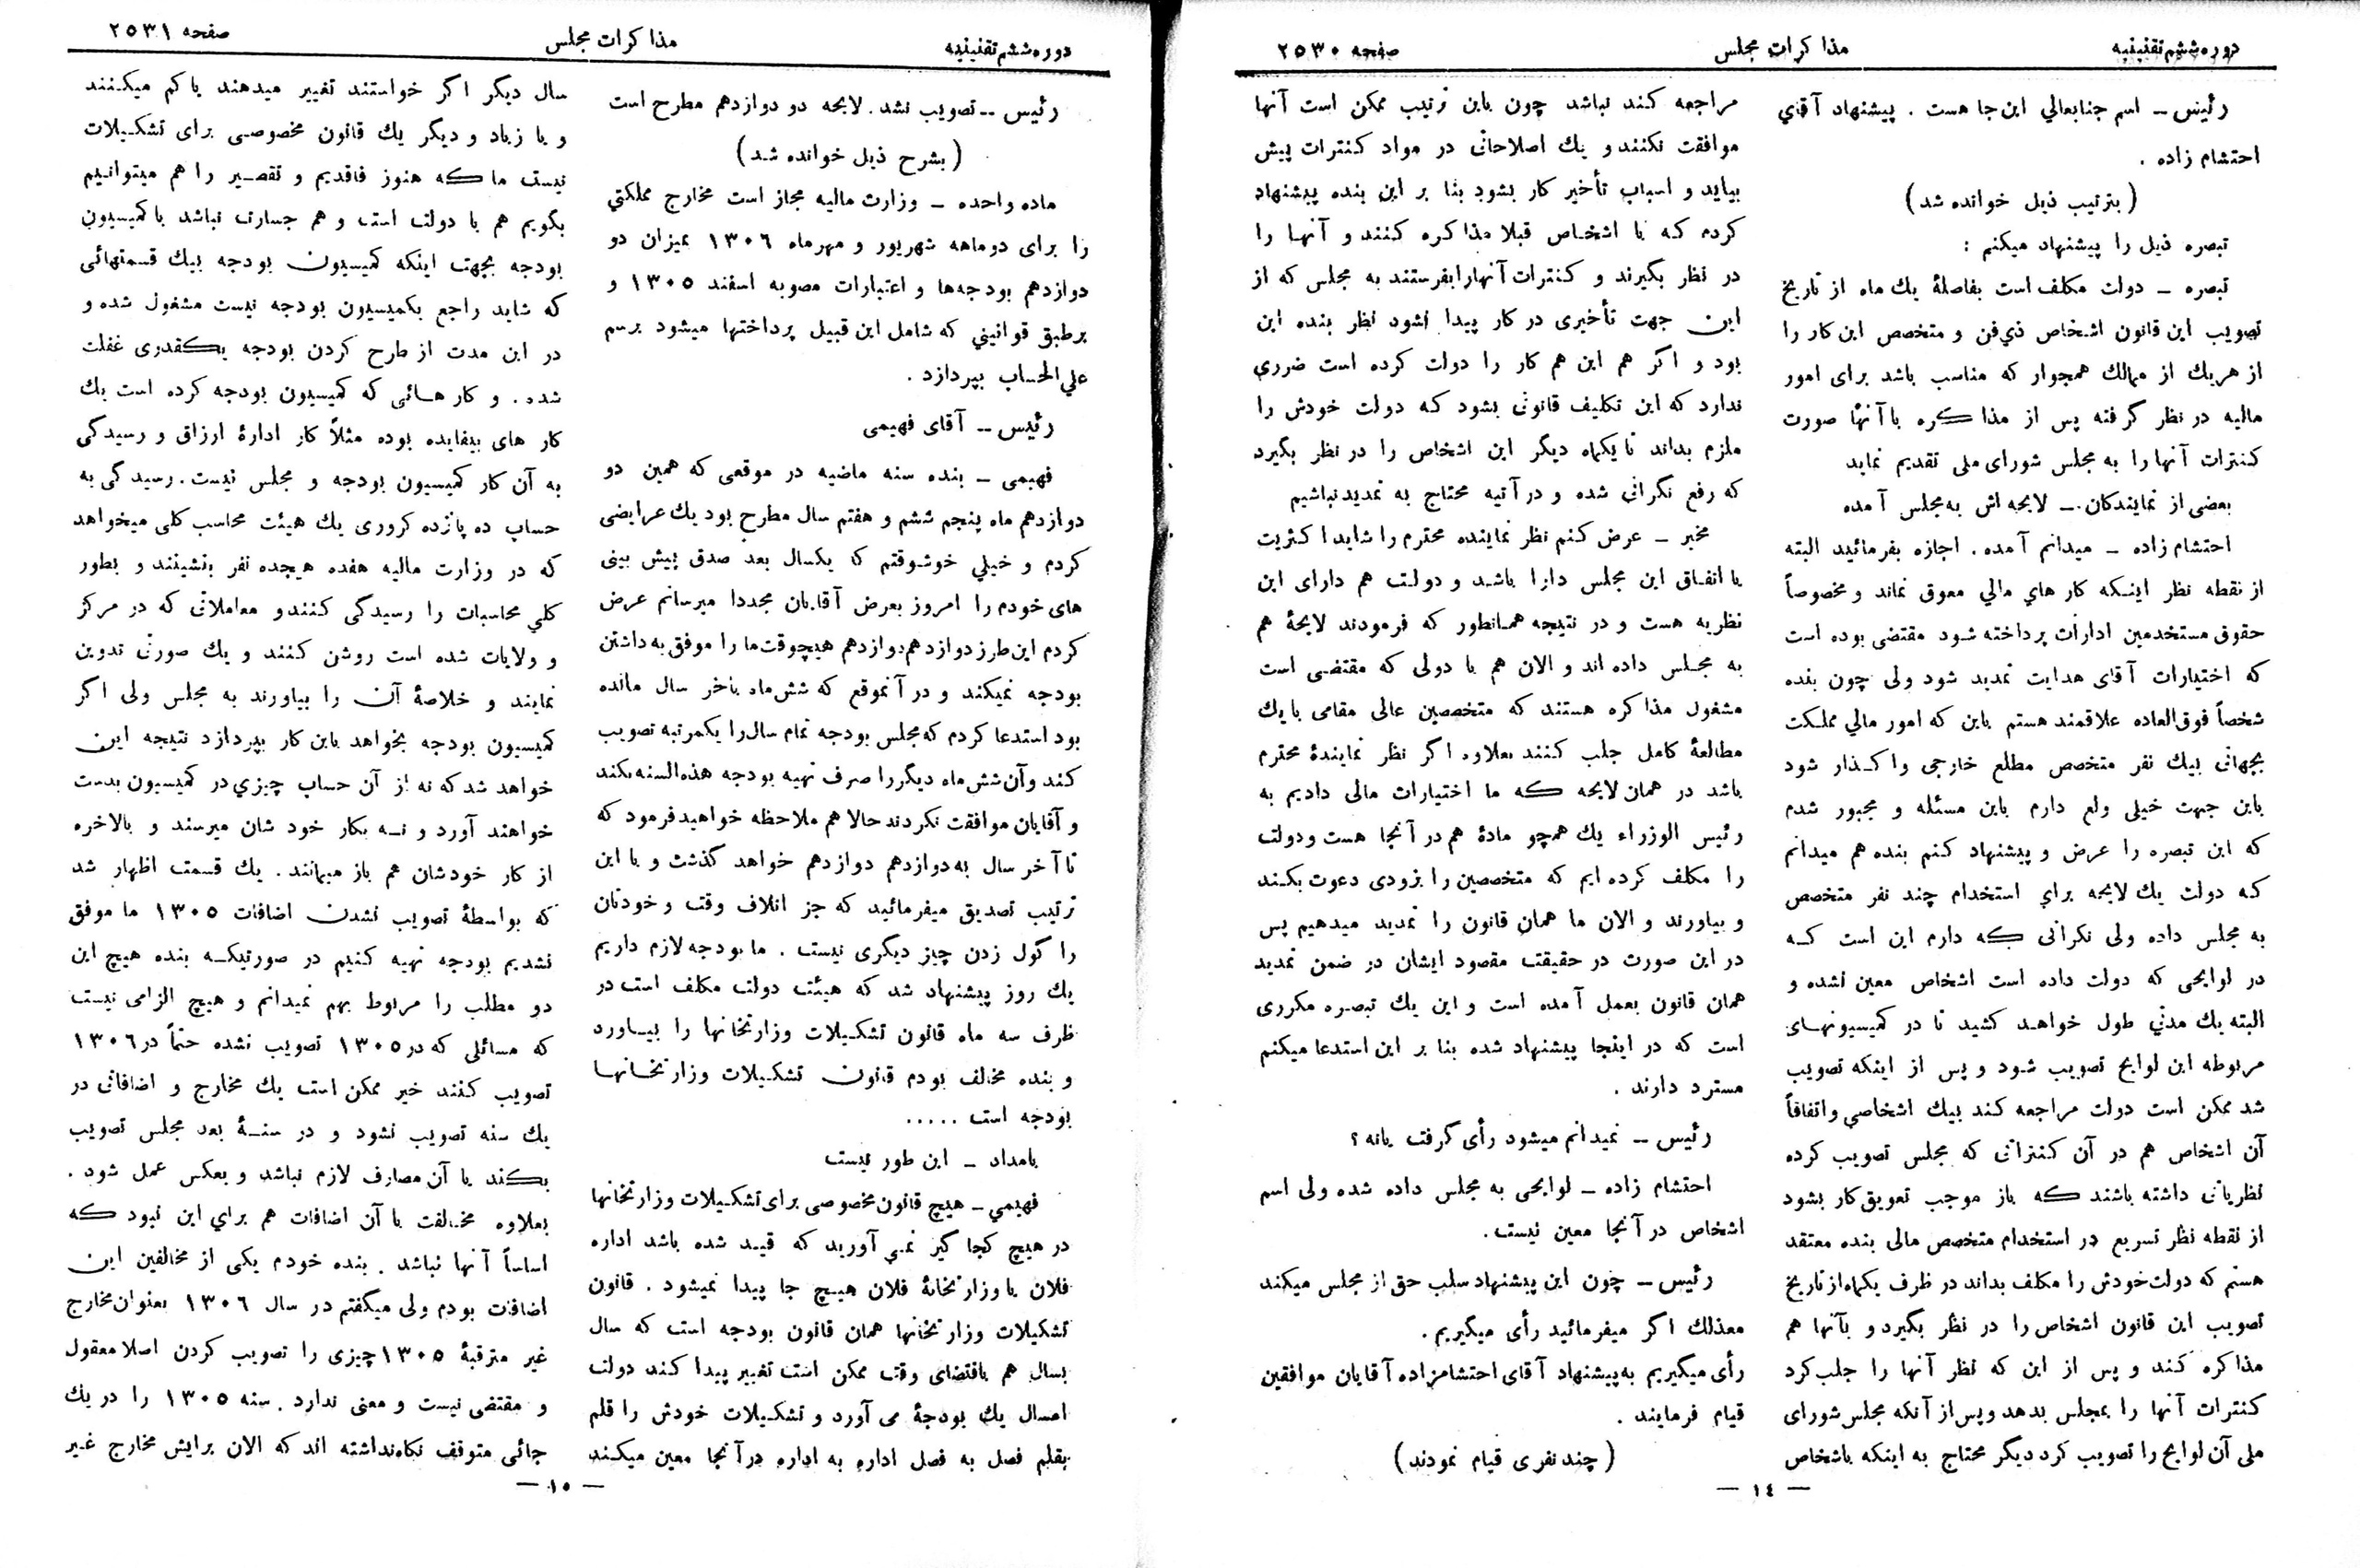 دوره ششم تقنینیه
مذاکرات مجلس
صفحه ۲۵۳۰
رئیس ــ اسم جنابعالي این جا هست . پیشنهاد آقاي
احتشام زاده .
(بترتیب ذیل خوانده شد)
تبصره ذیل را پیشنهاد میکنم :
تبصره ــ دولت مکلف است بفاصلهٔ یك ماه از تاریخ
تصویب این قانون اشخاص ذي‌فن و متخصص این کار را
از هریك از ممالك همجوار که مناسب باشد برای امور
مالیه در نظر گرفته پس از مذاکره با آنها صورت
کنترات آنها را به مجلس شورای ملی تقدیم نماید
بعضی از نمایندکان ــ لایحه اش به مجلس آمده
احتشام زاده ــ میدانم آمده . اجازه بفرمائید البته
از نقطه نظر اینکه کار هاي مالي معوق نماند و مخصوصاً
حقوق مستخدمین ادارات پرداخته شود مقتضی بوده است
که اختیارات آقای هدایت تمدید شود ولی چون بنده
شخصاً فوق‌العاده علاقمند هستم باین که امور مالي مملکت
بجهاتی بیك نفر متخصص مطلع خارجی واکذار شود
باین جهت خیلی ولع دارم باین مسئله و مجبور شدم
که این تبصره را عرض و پیشنهاد کنم بنده هم میدانم
که دولت یك لایحه براي استخدام چند نفر متخصص
به مجلس داده ولی نکرانی که دارم این است که
در لوایحی که دولت داده است اشخاص معین نشده و
البته یك مدتي طول خواهد کشید تا در کمیسیونهای
مربوطه این لوایح تصویب شود و پس از اینکه تصویب
شد ممکن است دولت مراجعه کند بیك اشخاصي و اتفاقاً
آن اشخاص هم در آن کنتراتی که مجلس تصویب کرده
نظریاتی داشته باشند که باز موجب تعویق کار بشود
از نقطه نظر تسریع در استخدام متخصص مالی بنده معتقد
هستم که دولت خودش را مکلف بداند در ظرف یکماه از تاریخ
تصویب این قانون اشخاص را در نظر بگیرد و بآنها هم
مذاکره کند و پس از این که نظر آنها را جلب کرد
کنترات آنها را بمجلس بدهد و پس از آنکه مجلس شورای
ملی آن لوایح را تصویب کرد دیگر محتاج به اینکه باشخاص
مراجعه کند نباشد چون باین ترتیب ممکن است آنها
موافقت نکنند و یك اصلاحاتی در مواد کنترات پیش
بیاید و اسباب تأخیر کار بشود بنا بر این بنده پیشنهاد
کردم که با اشخاص قبلا مذاکره کنند و آنها را
در نظر بگیرند و کنترات آنهارا بفرستند به مجلس که از
این جهت تأخیری در کار پیدا نشود نظر بنده این
بود و اگر هم این هم کار را دولت کرده است ضرري
ندارد که این تکلیف قانونی بشود که دولت خودش را
ملزم بداند تا یکماه دیگر این اشخاص را در نظر بگیرد
که رفع نگرانی شده و در آتیه محتاج به تمدید نباشیم
مخبر ــ عرض کنم نظر نماینده محترم را شاید اکثریت
یا اتفاق این مجلس دارا باشد و دولت هم دارای این
نظریه هست و در نتیجه همانطور که فرمودند لایحهٔ هم
به مجلس داده اند و الان هم با دولی که مقتضی است
مشغول مذاکره هستند که متخصصین عالی مقامی با یك
مطالعهٔ کامل جلب کنند بعلاوه اگر نظر نمایندهٔ محترم
باشد در همان لایحه که ما اختیارات مالی دادیم به
رئیس الوزراء یك همچو مادهٔ هم در آنجا هست و دولت
را مکلف کرده ایم که متخصصین را بزودی دعوت بکند
و بیاورند و الان ما همان قانون را تمدید میدهیم پس
در این صورت در حقیقت مقصود ایشان در ضمن تمدید
همان قانون بعمل آمده است و این یك تبصره مکرری
است که در اینجا پیشنهاد شده بنا بر این استدعا میکنم
مسترد دارند .
رئیس ــ نمیدانم میشود رأی گرفت یانه ؟
احتشام زاده ــ لوایحی به مجلس داده شده ولی اسم
اشخاص در آنجا معین نیست .
رئیس ــ چون این پیشنهاد سلب حق از مجلس میکند
معذلك اکر میفرمائید رأی میگیریم .
رأی میگیریم به پیشنهاد آقای احتشامزاده آقایان موافقین
قیام فرمایند .
(چند نفری قیام نمودند)
— ١٤ —
دوره ششم تقنینیه
مذاکرات مجلس
صفحه ۲۵۳۱
رئیس ــ تصویب نشد . لایحه دو دوازدهم مطرح است
(بشرح ذیل خوانده شد)
ماده واحده ــ وزارت مالیه مجاز است مخارج مملکتي
را برای دوماهه شهریور و مهرماه ۱۳۰٦ بمیزان دو
دوازدهم بودجه‌ها و اعتبارات مصوبه اسفند ۱۳۰٥ و
برطبق قوانیني که شامل این قبیل پرداختها میشود برسم
علي‌الحساب بپردازد .
رئیس ــ آقای فهیمی
فهیمی ــ بنده سنه ماضیه در موقعی که همین دو
دوازدهم ماه پنجم ششم و هفتم سال مطرح بود یك عرایضی
کردم و خیلي خوشوقتم که یکسال بعد صدق پیش بینی
های خودم را امروز بعرض آقایان مجددا میرسانم عرض
کردم این طرز دوازدهم دوازدهم هیچوقت ما را موفق به داشتن
بودجه نمیکند و در آنموقع که شش ماه بآخر سال مانده
بود استدعا کردم که مجلس بودجه تمام سال را یکمرتبه تصویب
کند و آن شش ماه دیگر را صرف تهیه بودجه هذه‌السنه بکند
و آقایان موافقت نکردند حالا هم ملاحظه خواهید فرمود که
تا آخر سال به دوازدهم دوازدهم خواهد گذشت و با این
ترتیب تصدیق میفرمائید که جز اتلاف وقت و خودتان
را گول زدن چیز دیگری نیست . ما بودجه لازم داریم
یك روز پیشنهاد شد که هیئت دولت مکلف است در
ظرف سه ماه قانون تشکیلات وزارتخانها را بیاورد
و بنده مخالف بودم قانون تشکیلات وزارتخانها
بودجه است .....
یامداد ــ این طور نیست
فهیمي ــ هیچ قانون مخصوصی برای تشکیلات وزارتخانها
در هیچ کجا گیر نمي آورید که قید شده باشد اداره
فلان یا وزارتخانهٔ فلان هیچ جا پیدا نمیشود . قانون
تشکیلات وزارتخانها همان قانون بودجه است که سال
بسال هم باقتضای وقت ممکن است تغییر پیدا کند دولت
امسال یك بودجهٔ می آورد و تشکیلات خودش را قلم
بقلم فصل به فصل اداره به اداره درآنجا معین میکند
سال دیگر اگر خواستند تغییر میدهند یا کم میکنند
و یا زیاد و دیگر یك قانون مخصوصی برای تشکیلات
نیست ما که هنوز فاقدیم و تقصیر را هم میتوانیم
بگویم هم با دولت است و هم جسارت نباشد با کمیسیون
بودجه بجهت اینکه کمیسیون بودجه بیك قسمتهائی
که شاید راجع بکمیسیون بودجه نیست مشغول شده و
در این مدت از طرح کردن بودجه یکقدری غفلت
شده . و کار هائی که کمیسیون بودجه کرده است یك
کار های بیفایده بوده مثلاً کار ادارهٔ ارزاق و رسیدگی
به آن کار کمیسیون بودجه و مجلس نیست . رسیدگی به
حساب ده پانزده کروری یك هیئت محاسب کلی میخواهد
که در وزارت مالیه هفده هیجده نفر بنشینند و بطور
کلي محاسبات را رسیدگی کنند و معاملاتی که در مرکز
و ولایات شده است روشن کنند و یك صورتی تدوین
نمایند و خلاصهٔ آن را بیاورند به مجلس ولی اگر
کمیسیون بودجه بخواهد باین کار بپردازد نتیجه این
خواهد شد که نه از آن حساب چیزي در کمیسیون بدست
خواهند آورد و نه بکار خود شان میرسند و بالاخره
از کار خودشان هم باز میمانند . یك قسمت اظهار شد
که بواسطهٔ تصویب نشدن اضافات ۱۳۰٥ ما موفق
نشدیم بودجه تهیه کنیم در صورتیکه بنده هیچ این
دو مطلب را مربوط بهم نمیدانم و هیچ الزامی نیست
که مسائلی که در ۱۳۰٥ تصویب نشده حتماً در ۱۳۰٦
تصویب کنند خیر ممکن است یك مخارج و اضافاتی در
یك سنه تصویب نشود و در سنهٔ بعد مجلس تصویب
بکند یا آن مصارف لازم نباشد و بعکس عمل شود .
بعلاوه مخالفت با آن اضافات هم براي این نبود که
اساساً آنها نباشد . بنده خودم یکی از مخالفین این
اضافات بودم ولی میگفتم در سال ۱۳۰٦ بعنوان مخارج
غیر مترقبهٔ ۱۳۰٥ چیزی را تصویب کردن اصلا معقول
و مقتضی نیست و معنی ندارد . سنه ۱۳۰٥ را در یك
جائی متوقف نگاه‌نداشته اند که الان برایش مخارج غیر
— ١٥ —